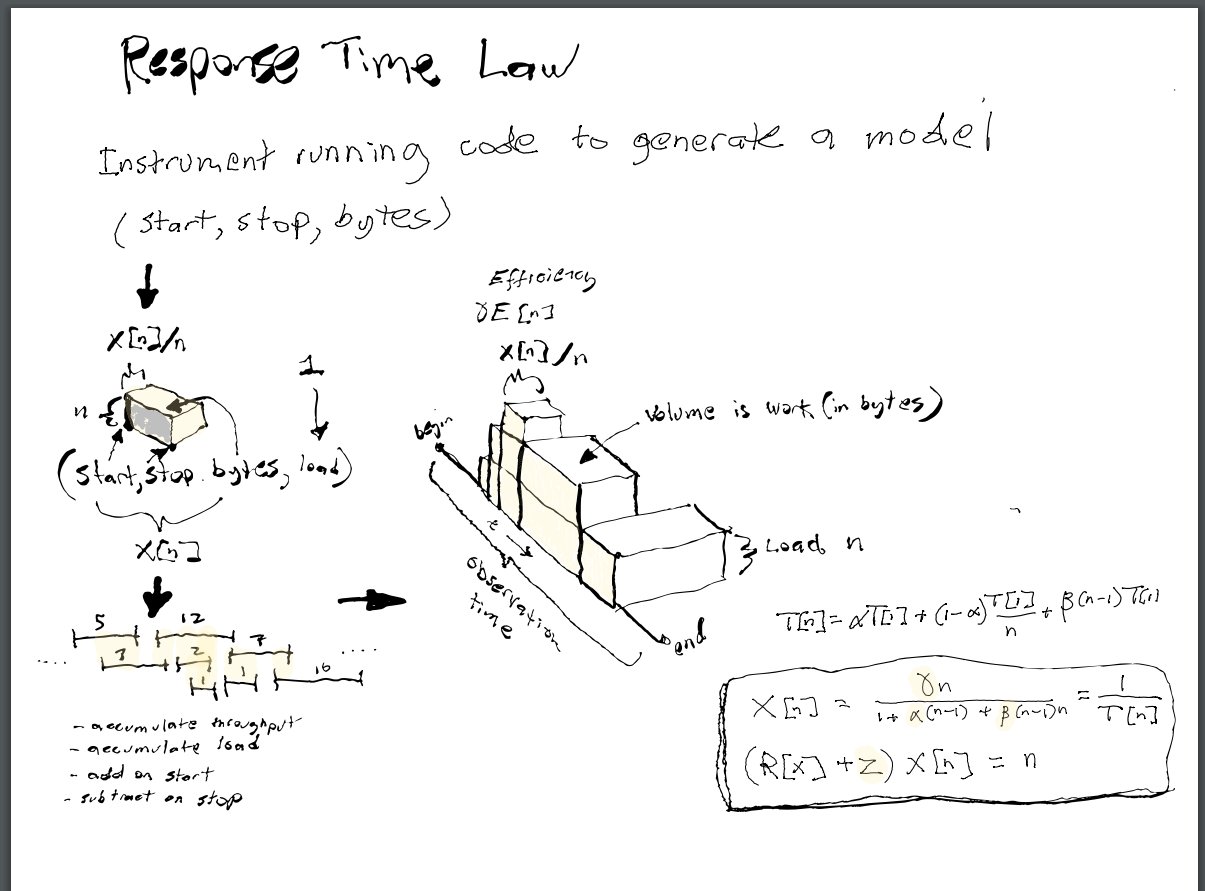 Response Time Law
Instrument running code to generate a model
(start, stop, bytes)
X[n]/n
1
n
(start, stop. bytes, load)
X[n]
5
12
7
3
2
1
1
10
....
....
- accumulate throughput
- accumulate load
- add on start
- subtract on stop
Efficiency
γE[n]
X[n]/n
Volume is work (in bytes)
begin
t
observation
time
end
Load n
T[n] = αT[1] + (1-α)T[1]/n + β(n-1)T[1]
X[n] = γn/(1+α(n-1) + β(n-1)n) = 1/T[n]
(R[x] + Z) X[n] = n